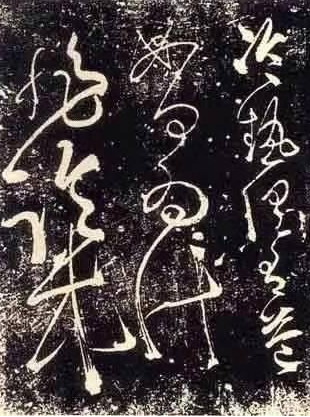 冷熱俱有益
如何為計
非臨床